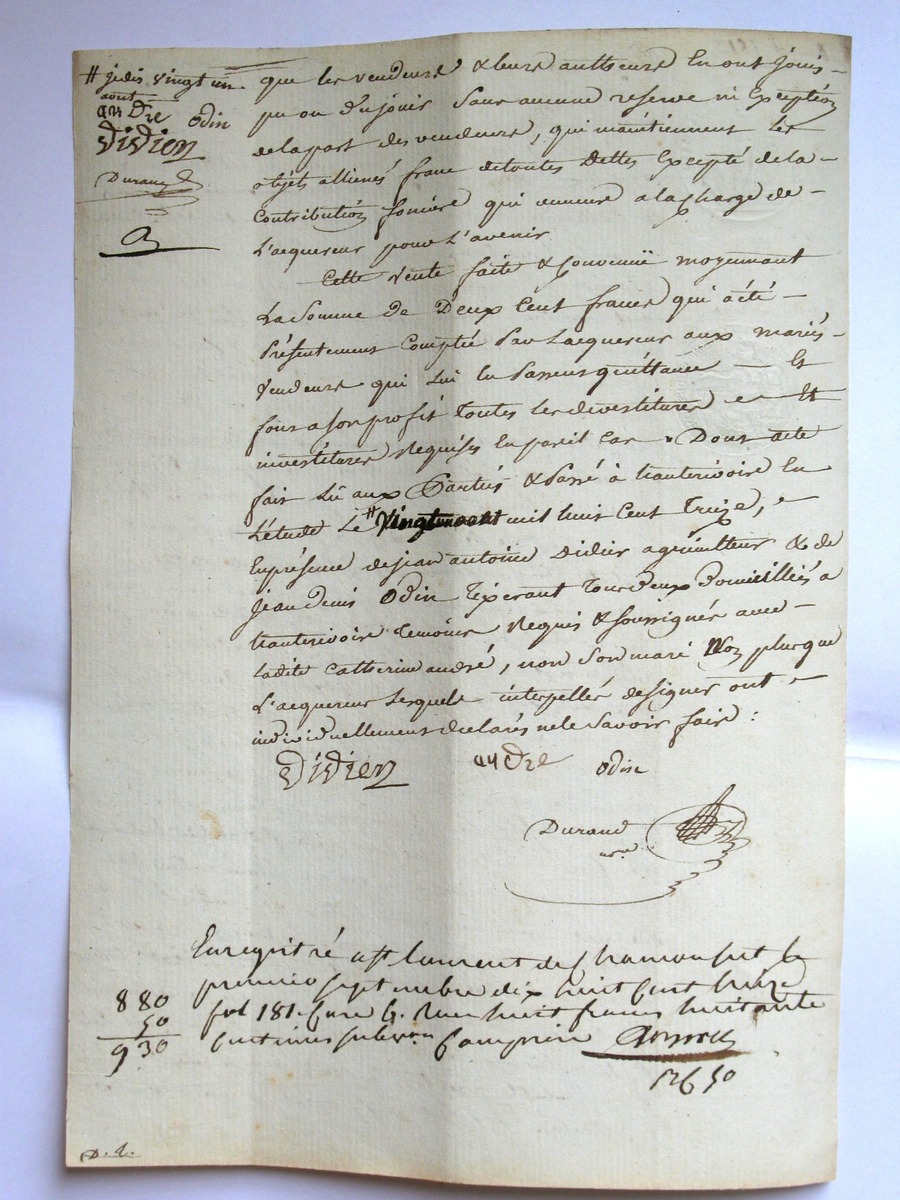 # jeudis vingt un
aout
andre odin
didier
Durand
que les vendeurs & leurs autheurs en ont jouis
pu ou du jouir sans aucune reserve ni Exception
de la part des vendeurs, qui maintiennent les
objets allienés franc de toutes Dettes Excepté de la
Contribution fonsière qui demeure a la charge de
L'acquereur pour L'avenir
Cette vente faite & convenüe moyennant
La Somme de Deux Cent francs qui a été
Présentement Comptée Par L'acquereur aux mariés
vendeurs qui Lui en Passent quittance Et
font a son profit toutes les devestitures et
investitures Requises En pareil Cas Dont acte
fait Lû aux Parties & Passé à hauterivoire En
L'étude Le # mil huit Cent Treize,
En présence de jean antoine Didier agriculteur & de
jean Denis Odin Tixerant Tous Deux Domicilliés a
hauterivoire Temoins Requis & soussignés avec
Ladite Catherine andré, non Son mari Non plus que
L'acquereur Lesquels interpellés de signer ont
individuellement declarés ne le Savoir faire :
didier andre odin
Durand
nore
Enregistré a st laurent de Chamousset le
premier septembre dix huit cent treize
fol 181. Case 6. Reçu huit francs huitante
centimes subvon Comprise
8 80
50
9 30
12 6 50
D. d.